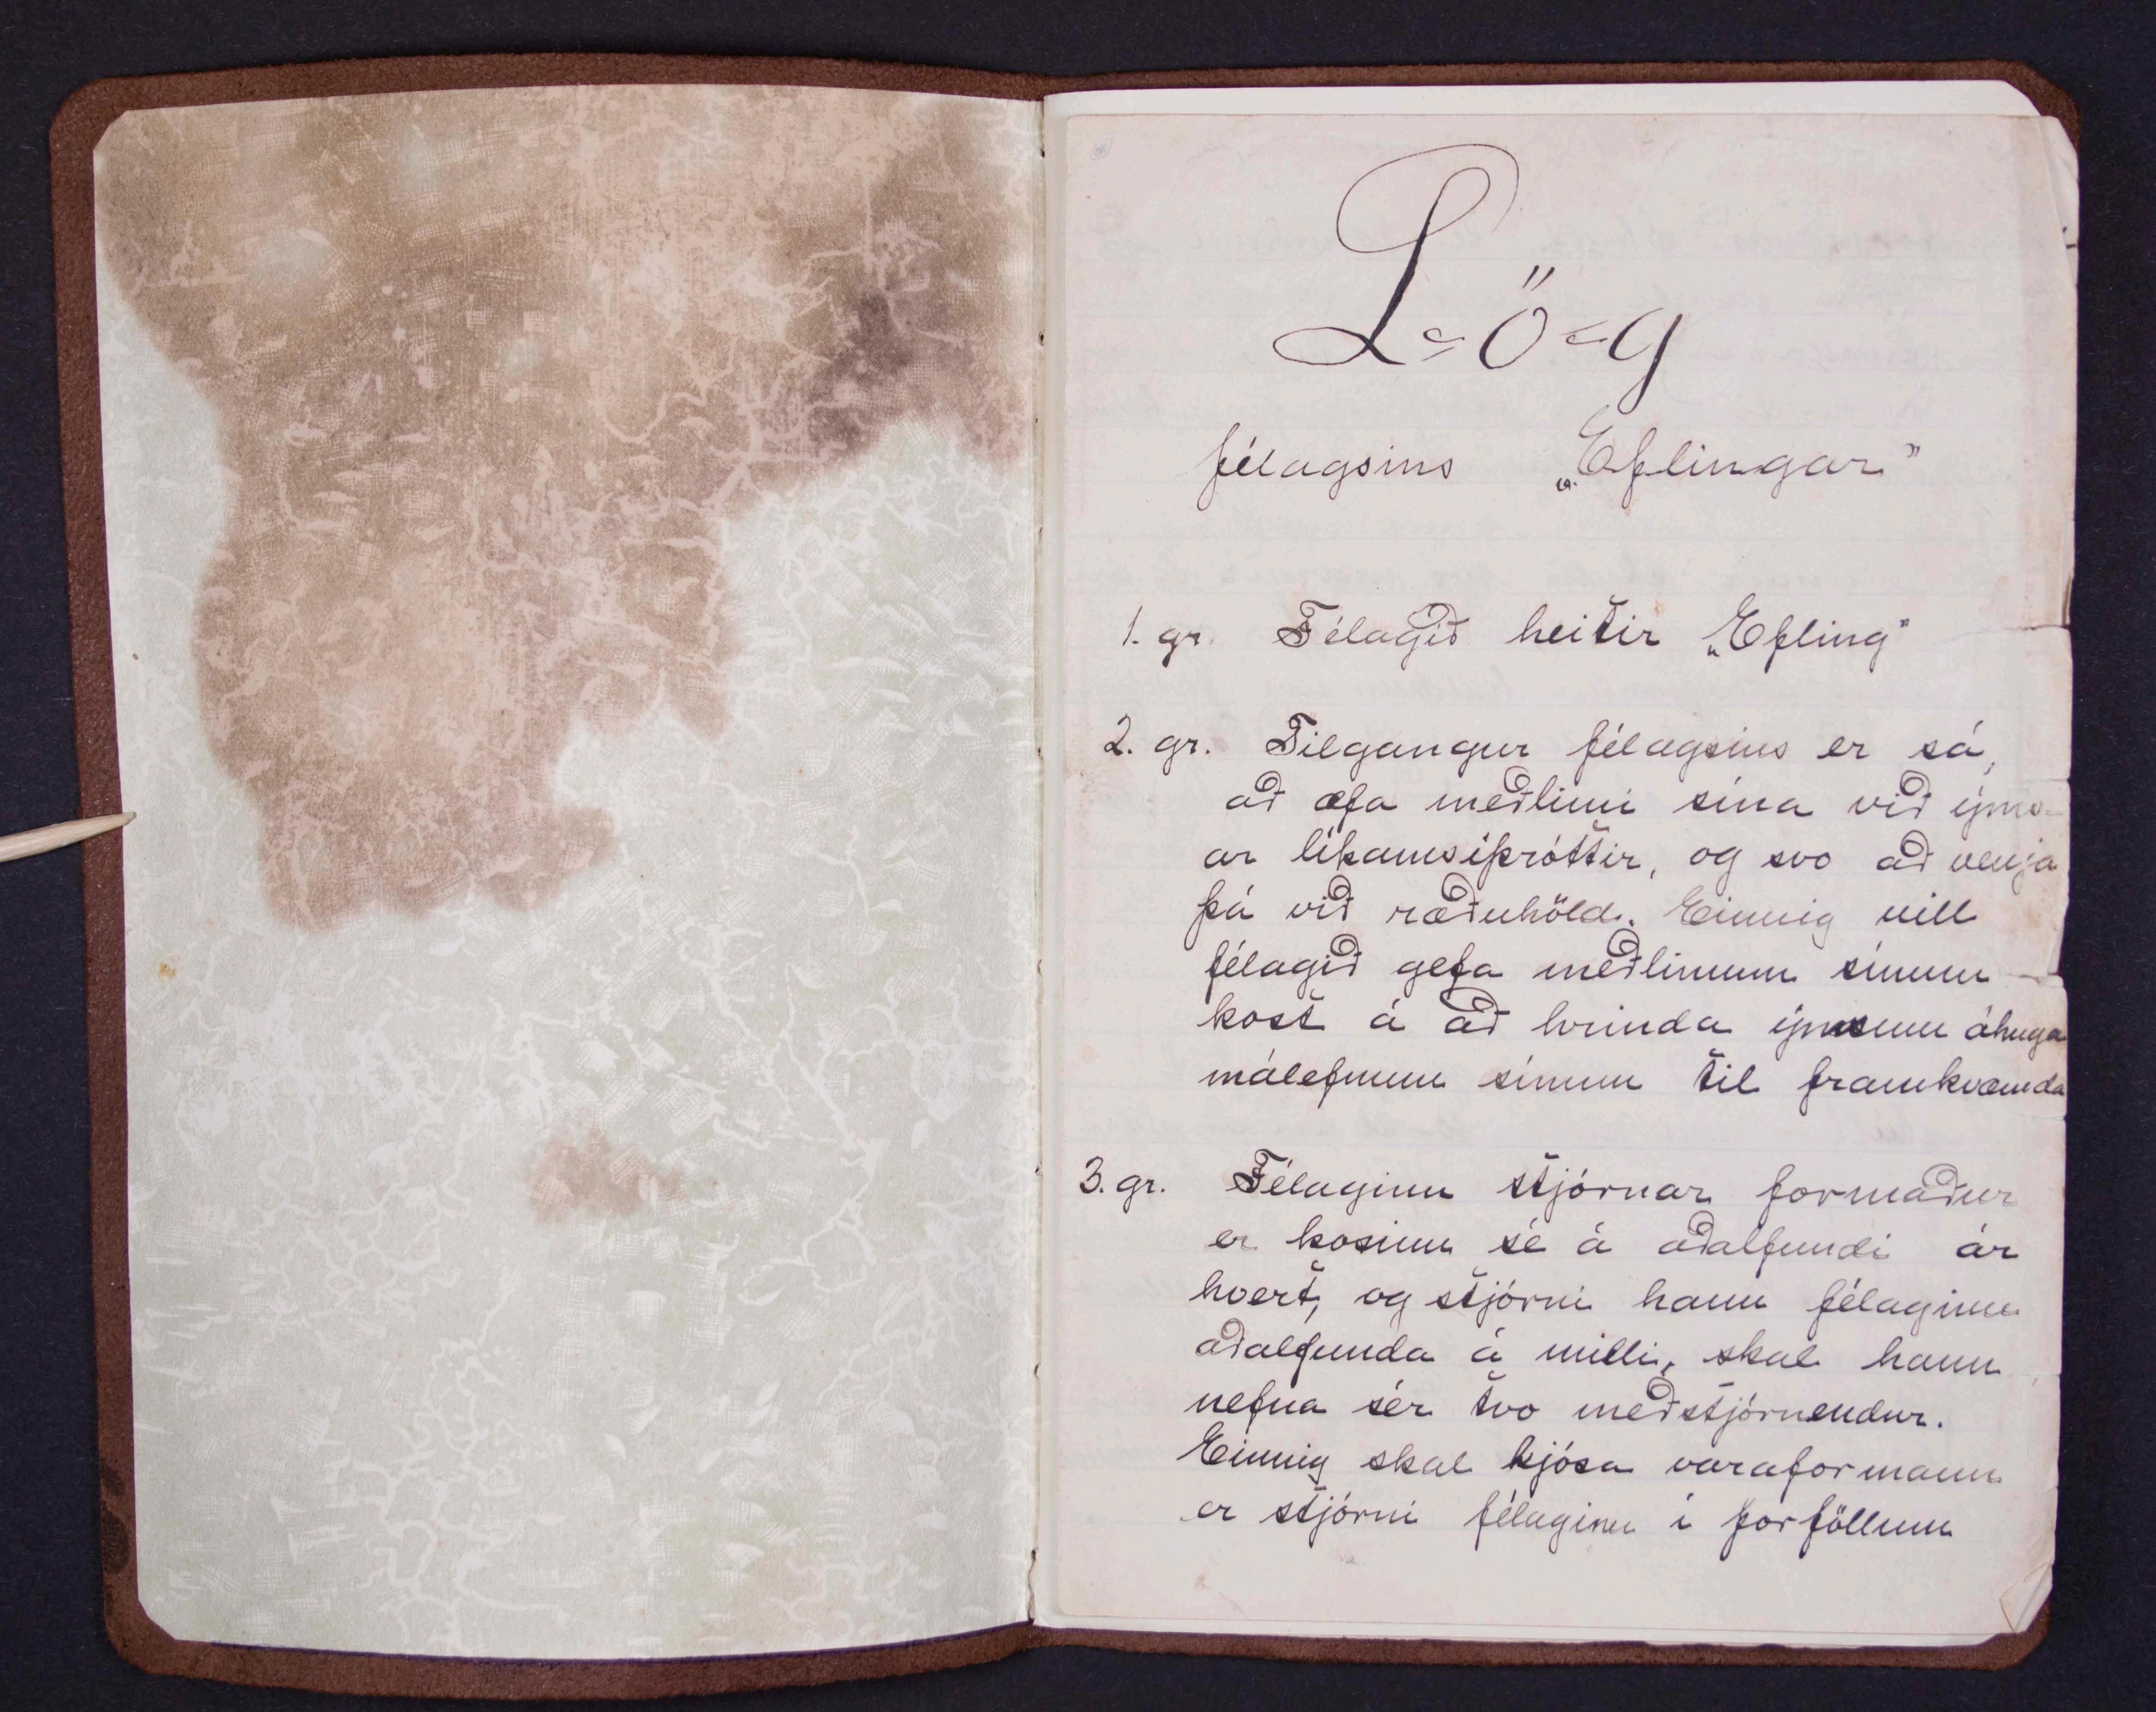 L=ö=g
félagsins „Eflingar"
1. gr. Félagið heitir „Efling"
2. gr. Tilgangur félagsins er sá,
að æfa meðlimi sína við ýms-
ar líkamsíþróttir, og svo að venja
þá við ræðuhöld. Einnig vill
félagið gefa meðlimum sínum
kost á að hrinda ýmsum áhuga
málefnum sínum til framkvæmda
3. gr. Félaginu stjórnar formaður
er kosinn sé á aðalfundi ár
hvert, og stjórni hann félaginu
aðalfunda á milli, skal hann
nefna sér tvo meðstjórnendur.
Einnig skal kjósa varaformann
er stjórni félaginu í forföllum